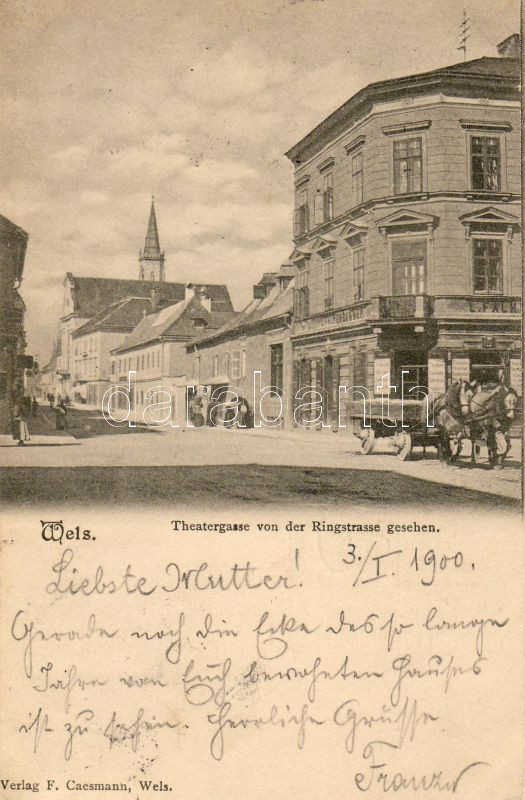 darabanth
Wels.
Theatergasse von der Ringstrasse gesehen.
3./I. 1900.
Liebste Mutter!
Gerade noch die Ecke des so lange
Jahre von Euch bewohnten Hauses
ist zu sehen. Herrliche Grüsse
Franz
Verlag F. Caesmann, Wels.